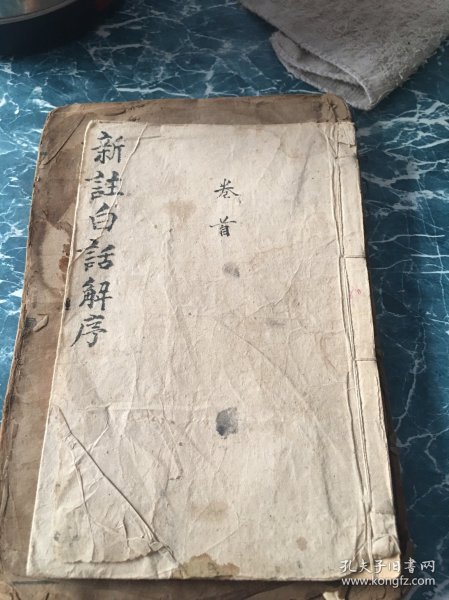 新註白話解序
卷首
孔夫子旧书网
www.kongfz.com